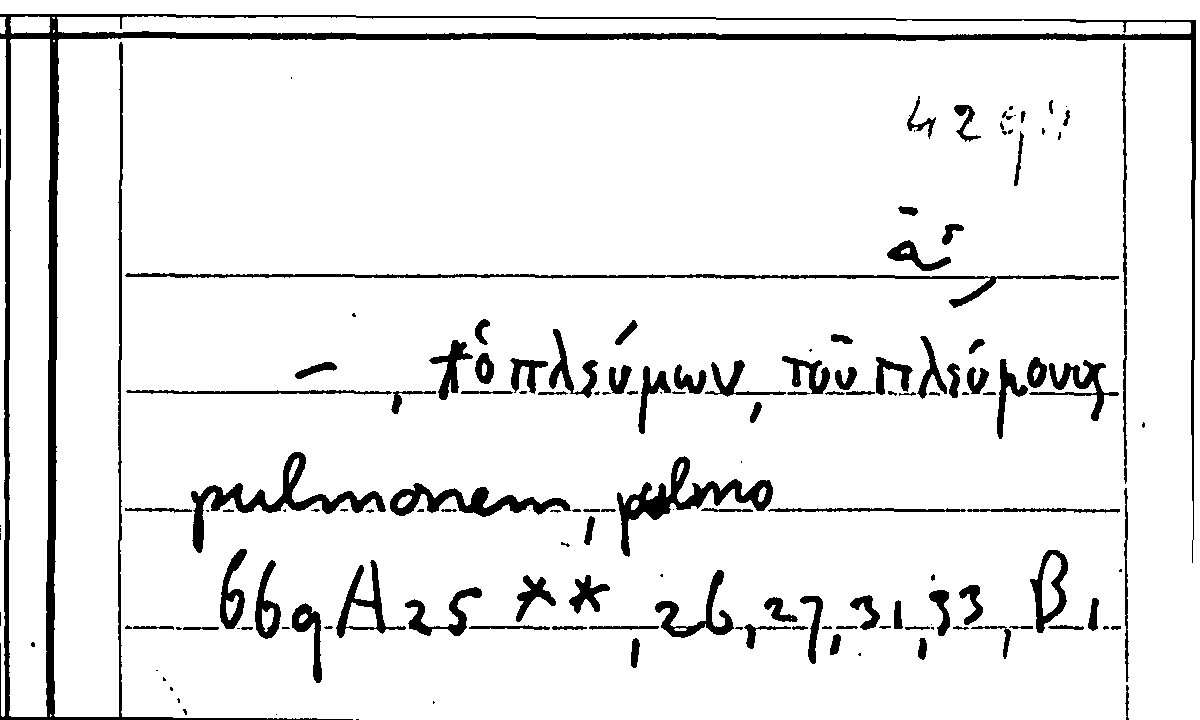 429
ᾱʳ
–, ὁ πλεύμων, τοῦ πλεύμονος
pulmonem, pulmo
669A25**, 26, 27, 31, 33, B1